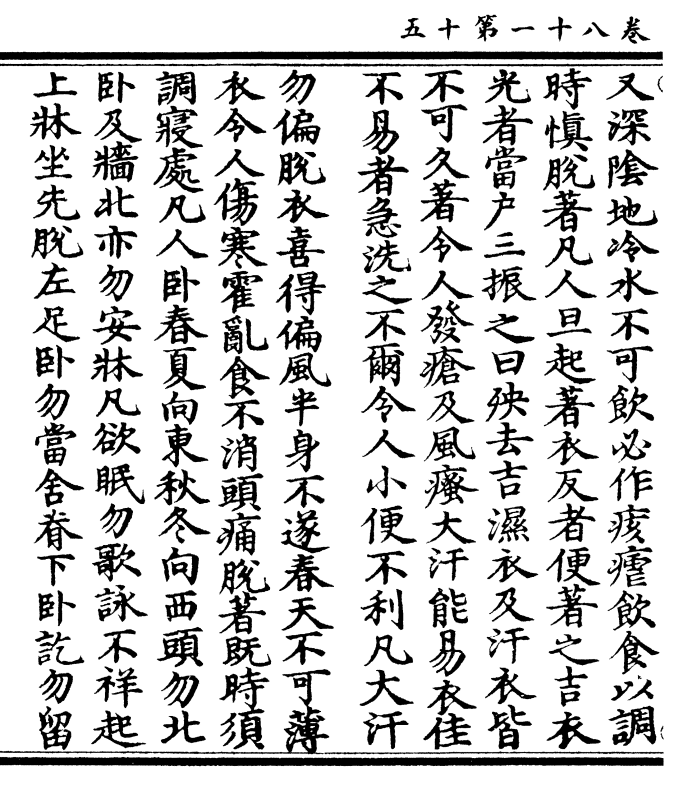 卷八十一第十五
又深陰地冷水不可飲必作痎瘧飲食以調
時慎脫著凡人旦起著衣反者便著之吉衣
光者當户三振之曰殃去吉濕衣及汗衣皆
不可久著令人發瘡及風瘙大汗能易衣佳
不易者急洗之不爾令人小便不利凡大汗
勿偏脫衣喜得偏風半身不遂春天不可薄
衣令人傷寒霍亂食不消頭痛脫著既時須
調寢處凡人臥春夏向東秋冬向西頭勿北
臥及牆北亦勿安牀凡欲眠勿歌詠不祥起
上牀坐先脫左足臥勿當舍脊下臥訖勿留